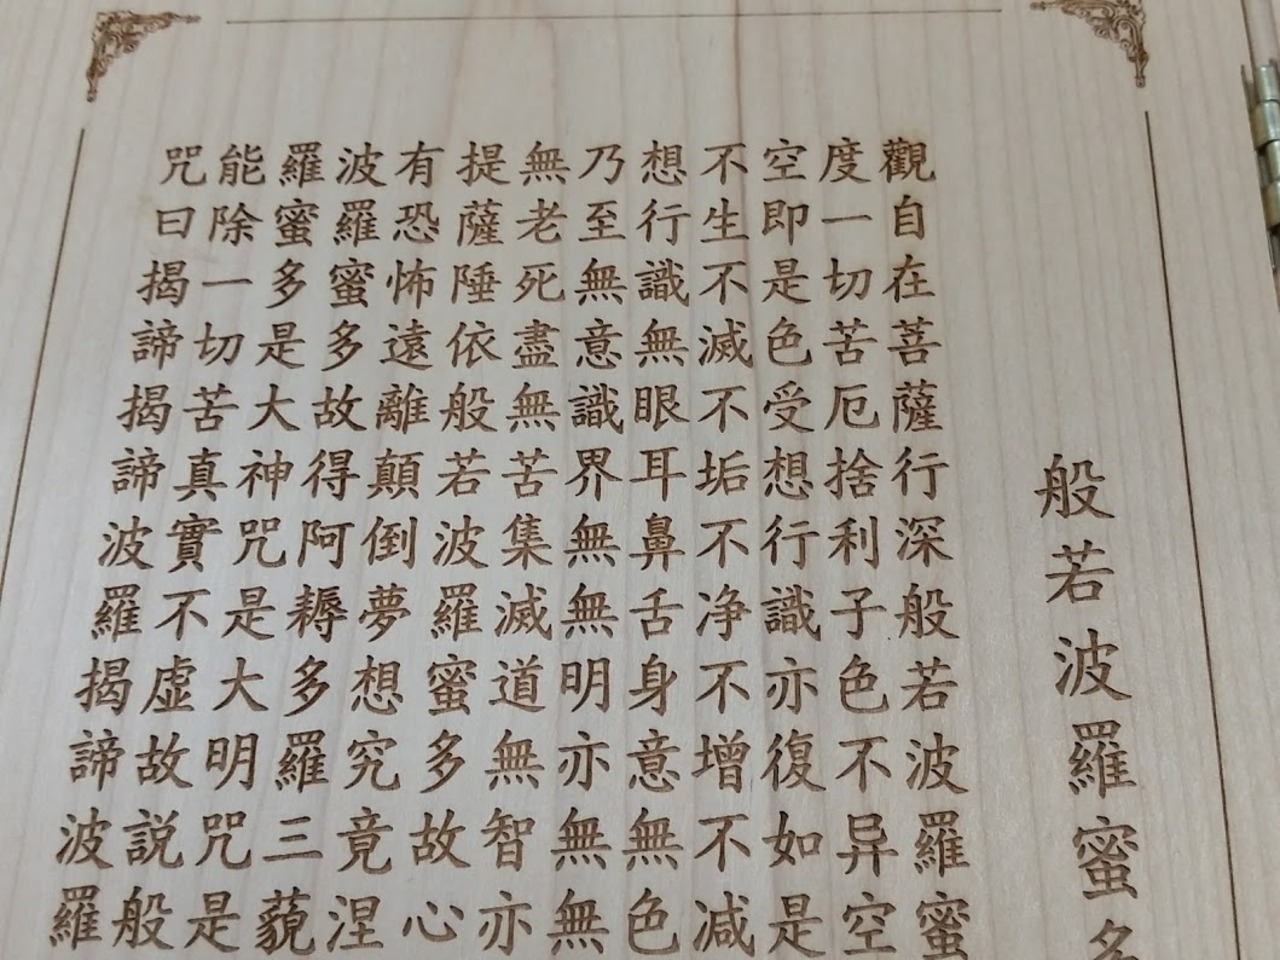 般若波羅蜜多
觀自在菩薩行深般若波羅蜜
度一切苦厄捨利子色不异空
空即是色受想行識亦復如是
不生不滅不垢不净不增不减
想行識無眼耳鼻舌身意無色
乃至無意識界無無明亦無無
無老死盡無苦集滅道無智亦
提薩陲依般若波羅蜜多故心
有恐怖遠離顛倒夢想究竟涅
波羅蜜多故得阿耨多羅三藐
羅蜜多是大神咒是大明咒是
能除一切苦真實不虚故説般
咒曰揭諦揭諦波羅揭諦波羅